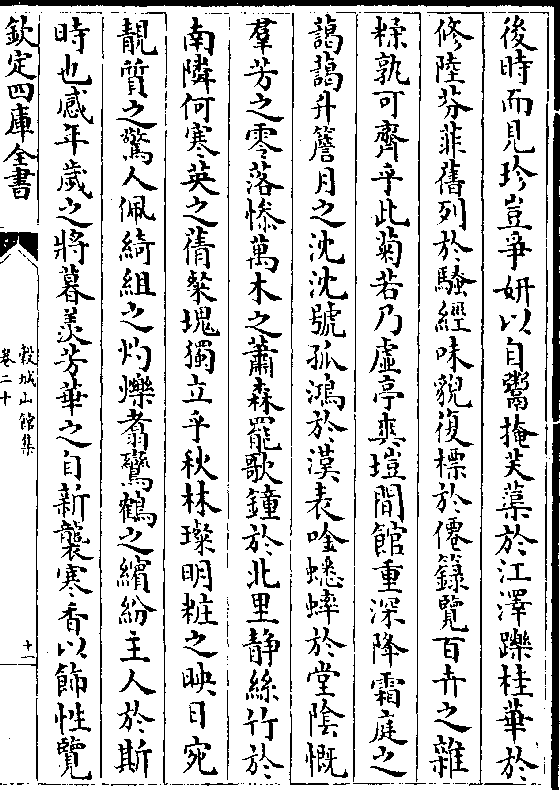 後時而見珍豈爭妍以自鬻掩芙蕖於江澤躒桂華於
修陸芬菲舊列於騷經味貌復標於僊籙覽百卉之雜
糅孰可齊乎此菊若乃虛亭爽塏閒館重深降霜庭之
藹藹升簷月之沈沈號孤鴻於漠表唫蟋蟀於堂陰慨
羣芳之零落慘萬木之蕭森罷歌鐘於北里静絲竹於
南隣何寒英之蒨粲塊獨立乎秋林璨明粧之映日宛
靚質之驚人佩綺組之灼爍翥鸞鶴之繽紛主人於斯
時也感年歲之將暮羨芳華之自新襲寒香以飾性覽
欽定四庫全書
穀城山館集
卷二十
十一